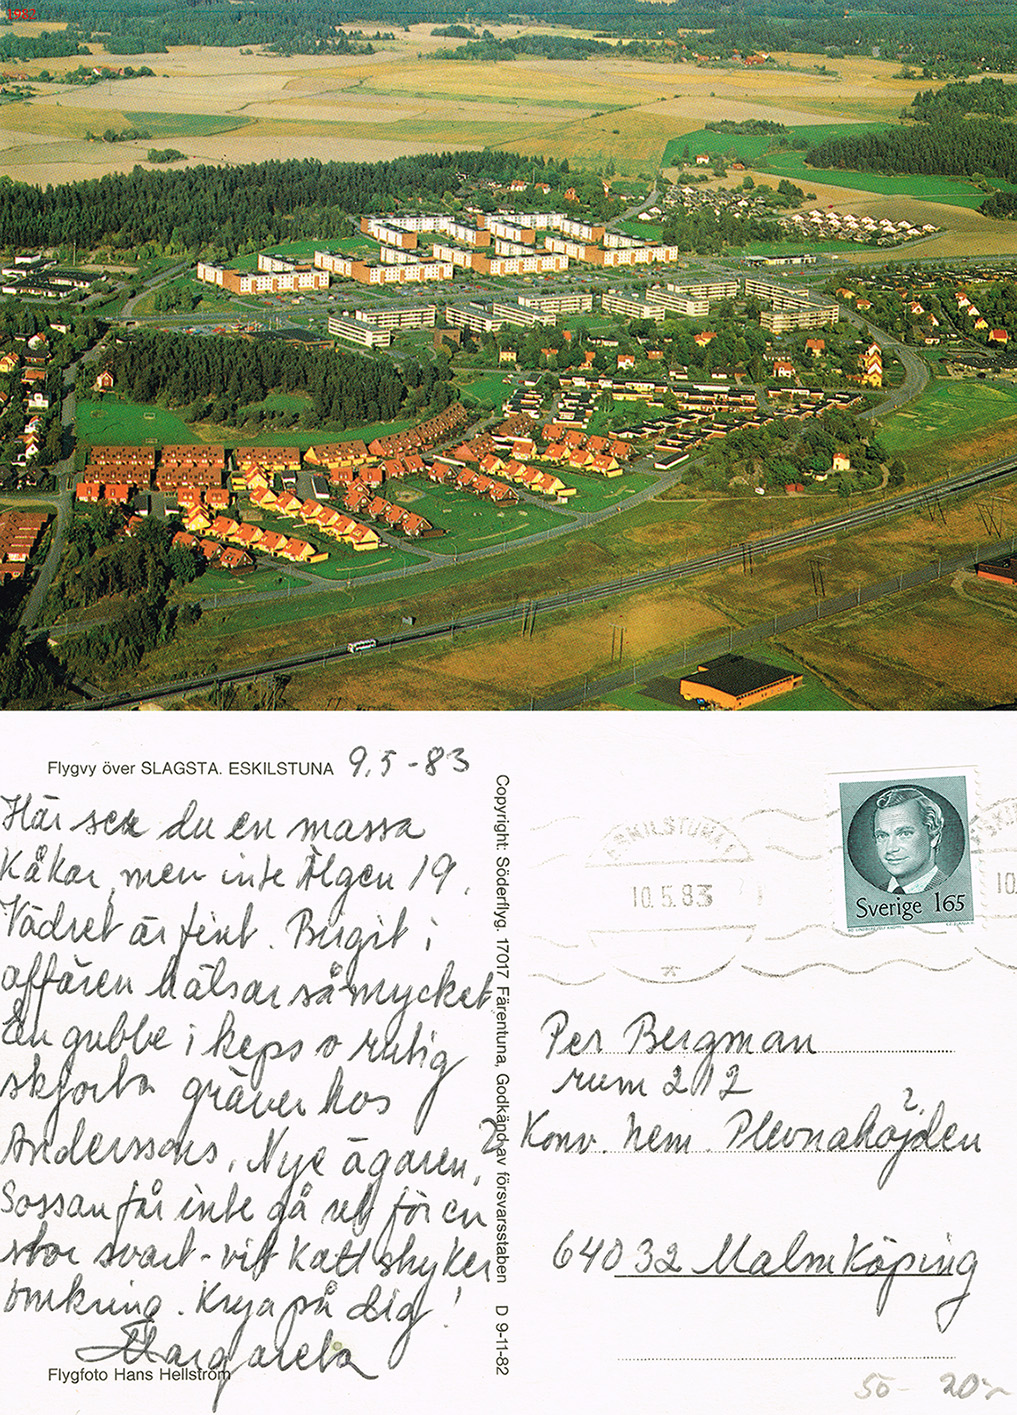 1982
Flygvy över SLAGSTA. ESKILSTUNA 9.5-83
Här ser du en massa
kåkar, men inte Älgen 19.
Vädret är fint. Birgit i
affären hälsar så mycket.
En gubbe i keps o rutig
skjorta gräver hos
Anderssons. Nye ägaren?
Sossan får inte gå ut för en
stor svart-vit katt stryker
omkring. Krya på dig!
Margareta
Flygfoto Hans Hellström
Copyright: Söderflyg, 17017 Färentuna, Godkänd av försvarsstaben D 9-11-82
ESKILSTUNA 1
10.5.83
Sverige 165
10
Per Bergman
rum 212
Konv. hem. Plevnahöjden
?
64032 Malmköping
50- 20:-